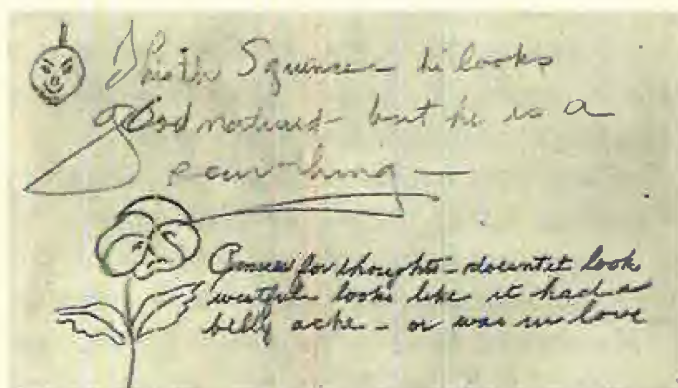 This is the he looks
good natured but he is a

for thought - doesnt it look
wistful looks like it had a
belly ache - or was in love